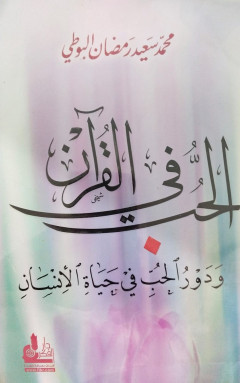 محمد سعيد رمضان البوطي
الحُبُّ في القرآن
وَدَوْرُ الحُبِّ في حَيَاةِ الإِنْسَانِ